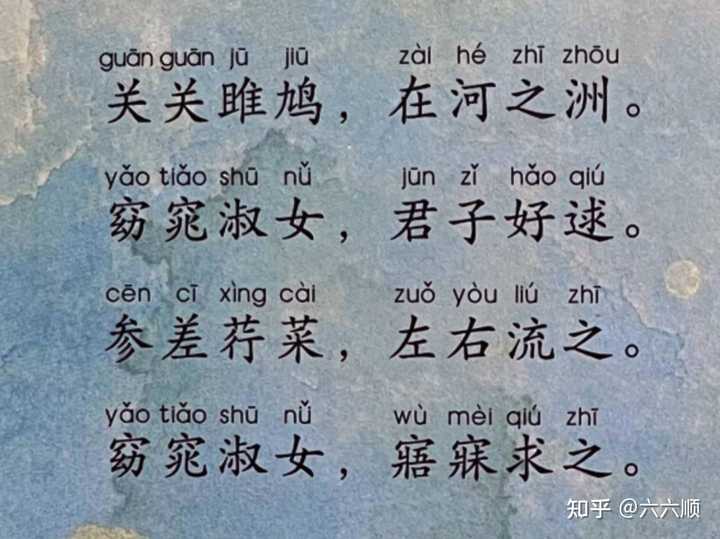 guān guān jū jiū zài hé zhī zhōu
关关雎鸠，在河之洲。
yǎo tiǎo shū nǚ jūn zǐ hǎo qiú
窈窕淑女，君子好逑。
cēn cī xìng cài zuǒ yòu liú zhī
参差荇菜，左右流之。
yǎo tiǎo shū nǚ wù mèi qiú zhī
窈窕淑女，寤寐求之。
知乎 @六六顺